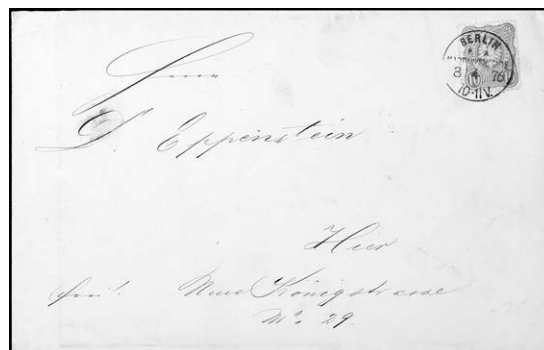 BERLIN
P.E.A.
8 4 76
10-11V.
Herrn
D. Eppenstein
Hier
frei! Neue Königstrasse
No. 29.